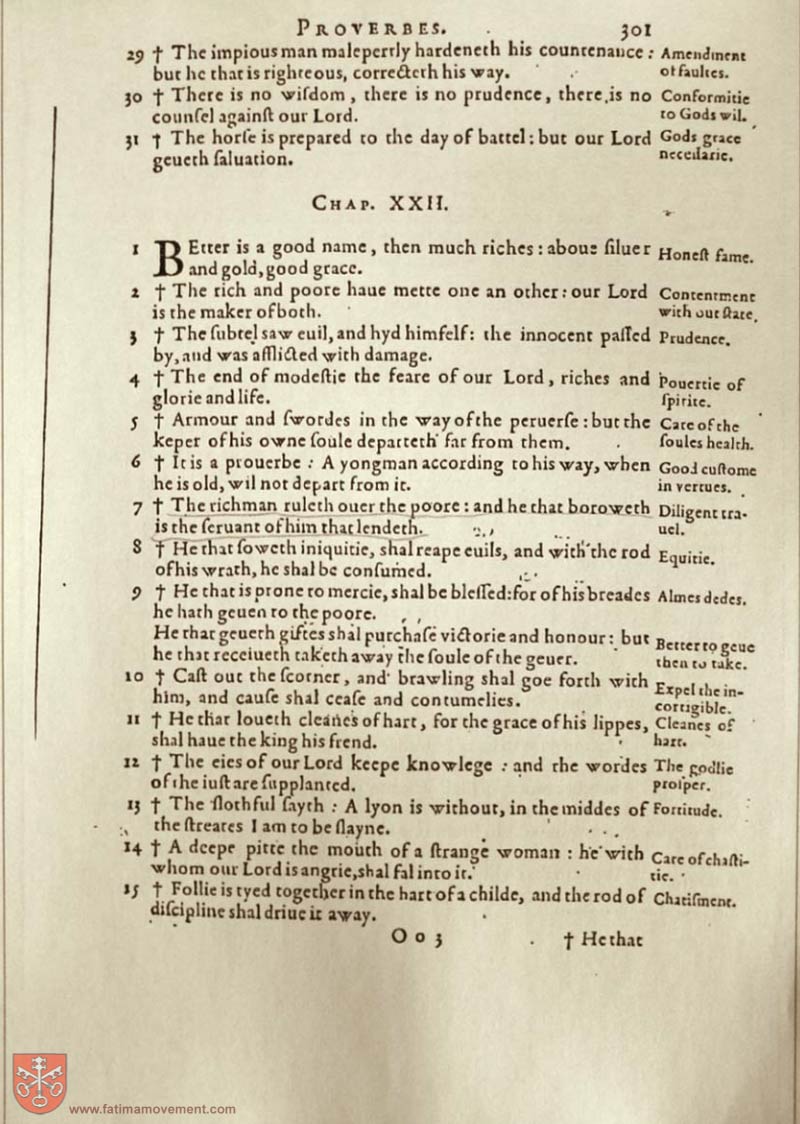 PROVERBES. 301
29 † The impious man malepertly hardeneth his countenance: Amendment
but he that is righteous, correcteth his way. of faultes.
30 † There is no wiſdom, there is no prudence, there is no Conformitie
counſel againſt our Lord. to Gods wil.
31 † The horſe is prepared to the day of battel: but our Lord Gods grace
geueth ſaluation. neceſſarie.
CHAP. XXII.
1 BEtter is a good name, then much riches: aboue ſiluer Honeſt fame.
and gold, good grace.
2 † The rich and poore haue mette one an other: our Lord Contentment
is the maker of both. with our ſtate.
3 † The ſubtel saw euil, and hyd himſelf: the innocent paſſed Prudence.
by, and was afflicted with damage.
4 † The end of modeſtie the feare of our Lord, riches and Pouertie of
glorie and life. ſpirite.
5 † Armour and ſwordes in the way of the peruerſe: but the Care of the
keper of his owne ſoule departeth far from them. ſoules health.
6 † It is a prouerbe: A yongman according to his way, when Good cuſtome
he is old, wil not depart from it. in vertues.
7 † The richman ruleth ouer the poore: and he that boroweth Diligent tra-
is the ſeruant of him that lendeth. uel.
8 † He that ſoweth iniquitie, shal reape euils, and with the rod Equitie.
of his wrath, he shal be conſumed.
9 † He that is prone to mercie, shal be bleſſed: for of his breades Almes dedes.
he hath geuen to the poore.
He that geueth giftes shal purchaſe victorie and honour: but Better to geue
he that receiueth taketh away the ſoule of the geuer. then to take.
10 † Caſt out the ſcorner, and brawling shal goe forth with Expel the in-
him, and cauſe shal ceaſe and contumelies. corrigible.
11 † He that loueth cleanes of hart, for the grace of his lippes, Cleanes of
shal haue the king his frend. hart.
12 † The eies of our Lord keepe knowlege: and the wordes The godlie
of the iuſt are ſupplanted. proſper.
13 † The ſlothful ſayth: A lyon is without, in the middes of Fortitude.
the ſtreates I am to be ſlayne.
14 † A deepe pitte the mouth of a ſtrange woman: he with Care of chaſti-
whom our Lord is angrie, shal fal into it. tie.
15 † Follie is tyed together in the hart of a childe, and the rod of Chatiſment.
diſcipline shal driue it away.
Oo3 † He that
www.fatimamovement.com